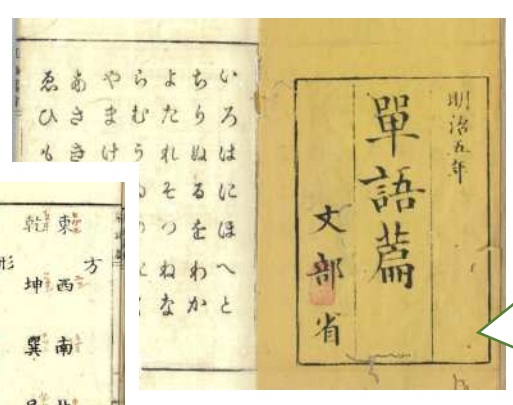 明治五年
單語篇
文部省
いろはにほへと
ちりぬるをわか
よたれそつねな
らむう
やまけ
あさき
ゑひも
方
東西南北
乾坤巽
形